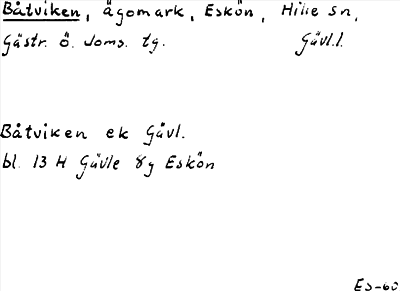 Båtviken, ägomark, Eskön, Hille sn,
Gästr. ö. doms. tg. Gävl.l.
Båtviken ek Gävl.
bl. 13 H Gävle 8g Eskön
ES-60